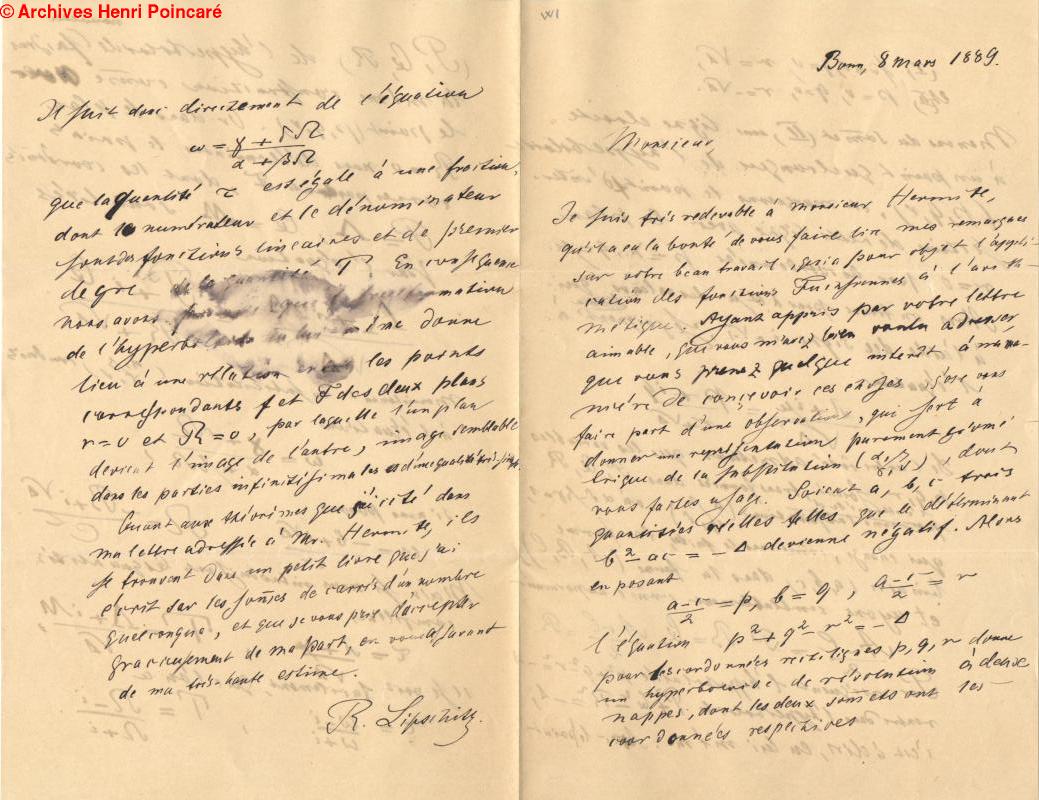 © Archives Henri Poincaré
Bonn, 8 mars 1889.
Monsieur,
Je suis très redevable à monsieur Hermite,
qu'il a eu la bonté de vous faire lire mes remarques
sur votre beau travail, qui a pour objet l'appli-
cation des fonctions Fuchsiennes à l'arith-
métique. Ayant appris par votre lettre
aimable, que vous m'avez bien voulu adresser,
que vous prenez quelque intérêt à ma ma-
nière de conçevoir ces choses, j'ose vous
faire part d'une observation, qui sert à
donner une représentation purement géomé-
trique de la substitution (α,β/γ,δ), dont
vous faites usage. Soient a, b, c trois
quantitées réelles telles que le déterminant
b² - ac = - Δ devienne négatif. Alors
en posant
a-c/2 = p, b = q, a-c/2 = r
l'équation p² + q² - r² = - Δ
pour les cordonnées rectilignes p, q, r donne
un hyperboloide de révolution à deux
nappes, dont les deux sommets ont les
coordonnées respectives
Il suit donc directement de l'équation
ω = γ + δΩ / α + βΩ
que la quantité τ est égale à une fraction,
dont le numérateur et le dénominateur
sont des fonctions linéaires et de premier
degré de la quantité T. En conséquence
nous avons que la transformation
de l'hyperboloide en lui-même donne
lieu à une rélation entre les points
correspondants f et F des deux plans
r = 0 et R = 0, par laquelle l'un plan
devient l'image de l'autre, image semblable
dans les parties infinitésimales
Quant aux théorèmes que j'ai cité dans
ma lettre adressée à Mr. Hermite, ils
se trouvent dans un petit livre que j'ai
écrit sur les sommes de carrés d'un nombre
quelconque, et que je vous prie d'accepter
gracieusement de ma part, en vous assurant
de ma très-haute estime.
R. Lipschitz.